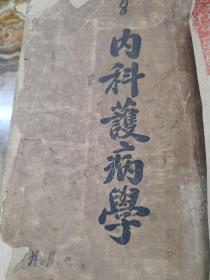 内科護病學